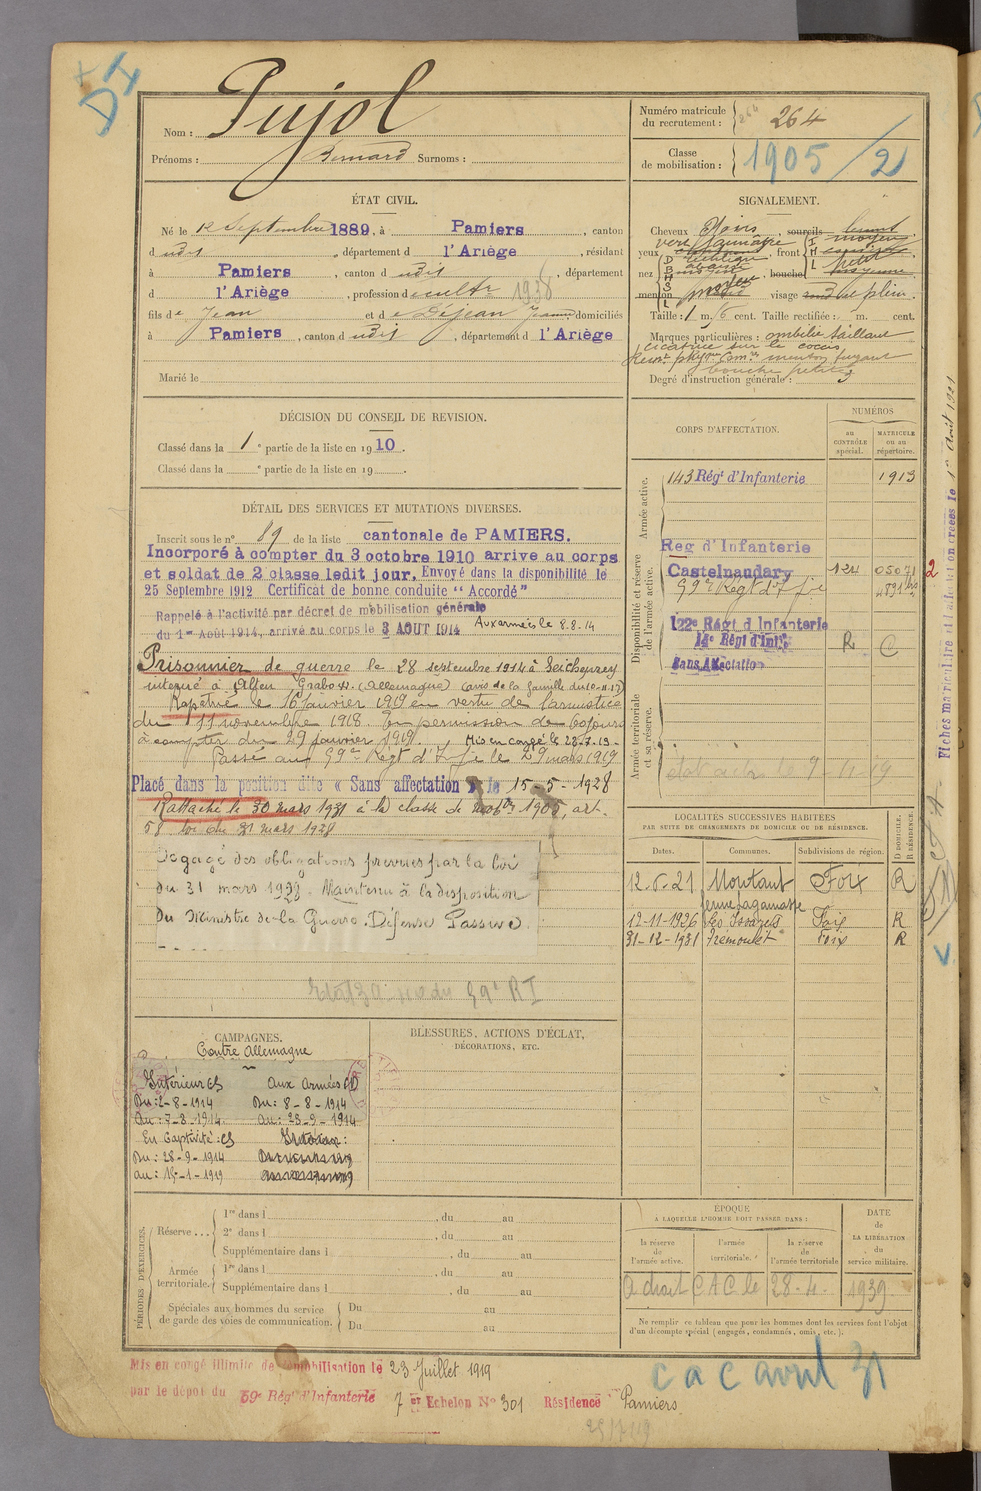 Nom : Pujol
Prénoms : Bernard Surnoms :
Numéro matricule
du recrutement : 264
Classe
de mobilisation : 1905 / 2
ÉTAT CIVIL.
Né le 12 Septembre 1889, à Pamiers, canton
d udit, département d l'Ariège, résidant
à Pamiers, canton d udit, département
d l'Ariège, profession d cultr 1938
fils de Jean et de Dejean Jeanne domiciliés
à Pamiers, canton d udit, département d l'Ariège
Marié le
SIGNALEMENT.
Cheveux sourcils
yeux front
nez bouche
menton visage plein.
Taille : 1 m. cent. Taille rectifiée : m. cent.
Marques particulières : ombilic saillant
cicatrice sur le coccis
menton fuyant
bouche petite
Degré d'instruction générale : 3
DÉCISION DU CONSEIL DE REVISION.
Classé dans la 1e partie de la liste en 1910.
Classé dans la e partie de la liste en 19 .
CORPS D'AFFECTATION.
NUMÉROS
au
CONTRÔLE
spécial.
MATRICULE
ou au
répertoire.
Armée active.
143 Régt d'Infanterie 1913
Disponibilité et réserve
de l'armée active.
Reg d'Infanterie
Castelnaudary 124 05071
59e Régt d'Ifie
122e Régt d Infanterie
14e Régt d'Inf R C
Sans Affectation
Armée territoriale
et sa réserve.
DÉTAIL DES SERVICES ET MUTATIONS DIVERSES.
Inscrit sous le n° 89 de la liste cantonale de PAMIERS.
Incorporé à compter du 3 octobre 1910 arrive au corps
et soldat de 2 classe ledit jour. Envoyé dans la disponibilité le
25 Septembre 1912 Certificat de bonne conduite "Accordé"
Rappelé à l'activité par décret de mobilisation générale
du 1er Août 1914, arrivé au corps le 3 AOUT 1914 Aux armées le 8.8.14
Prisonnier de guerre le 28 septembre 1914 à Seicheprey
interné à Alten Grabow (Allemagne) (avis de la famille du
Rapatrié le 16 janvier 1919 en vertu de l'armistice
du 11 novembre 1918. En permission de 60 jours
à compter du 29 janvier 1919. Mis en congé le 23-7-19-
Passé au 59e Régt d'Ifie le 29 mars 1919
Placé dans la position dite « Sans affectation » le 15-5-1928
Rattaché le 30 mars 1931 à la classe de mobon 1905, art.
58 loi du 31 mars 1928
Dégagé des obligations prévues par la loi
du 31 mars 1928. Maintenu à la disposition
du Ministre de la Guerre. Défense Passive.
LOCALITÉS SUCCESSIVES HABITÉES
PAR SUITE DE CHANGEMENTS DE DOMICILE OU DE RÉSIDENCE.
Dates. Communes. Subdivisions de région. D DOMICILE. R RÉSIDENCE.
12-6-21 Montaut Foix R
ferme Lagamasse
12-11-1926 Les Issards Foix R
31-12-1931 Trémoulet Foix R
CAMPAGNES.
Contre Allemagne
Intérieur CS
Du : 2-8-1914
Au : 7-8-1914.
Aux armées CD
Du : 8-8-1914
Au : 28-9-1914
En Captivité : CS
Du : 28-9-1914
au : 15-1-1919
BLESSURES, ACTIONS D'ÉCLAT,
DÉCORATIONS, ETC.
PÉRIODES D'EXERCICES.
Réserve ...
1re dans l , du au
2e dans l , du au
Supplémentaire dans l , du au
Armée
territoriale.
1re dans l , du au
Supplémentaire dans l , du au
Spéciales aux hommes du service
de garde des voies de communication.
Du au
Du au
ÉPOQUE
A LAQUELLE L'HOMME DOIT PASSER DANS :
la réserve
de
l'armée active.
l'armée
territoriale.
la réserve
de
l'armée territoriale
DATE
de
LA LIBÉRATION
du
service militaire.
A droit CAC le 28-4- 1939
Ne remplir ce tableau que pour les hommes dont les services font l'objet
d'un décompte spécial (engagés, condamnés, omis, etc.).
Mis en congé illimité de démobilisation le 23 Juillet 1919
par le dépôt du 59e Régt d'Infanterie 7e Echelon N° 301 Résidence Pamiers
c a c avril 31